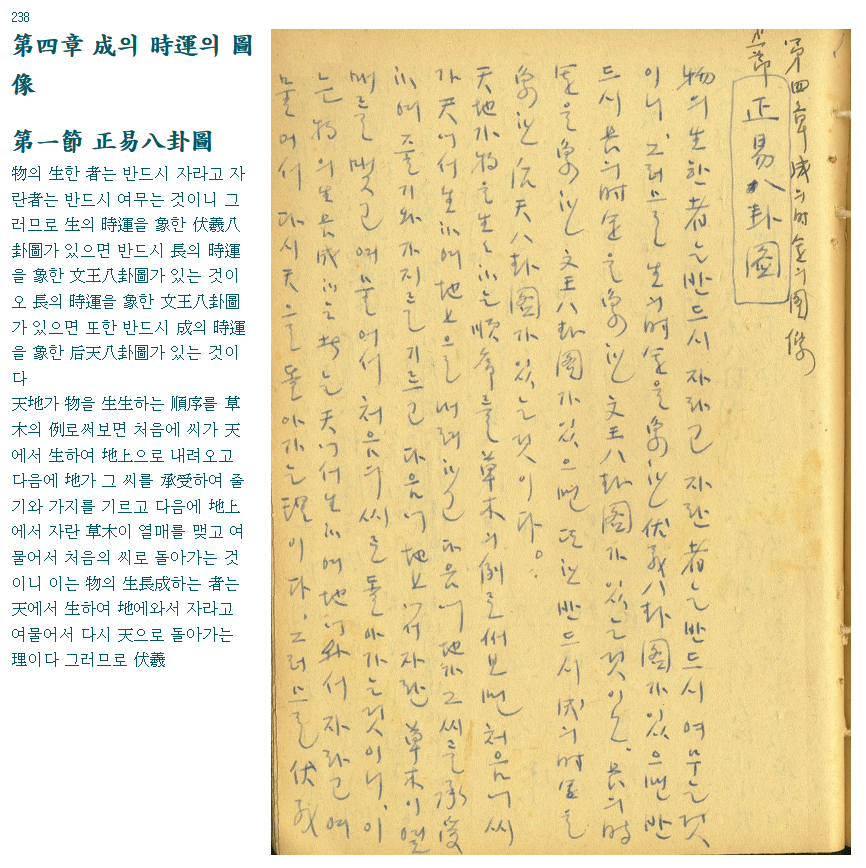 238
第四章 成의 時運의 圖
像
第一節 正易八卦圖
物의 生한 者는 반드시 자라고 자
란者는 반드시 여무는 것이니 그
러므로 生의 時運을 象한 伏羲八
卦圖가 있으면 반드시 長의 時運
을 象한 文王八卦圖가 있는 것이
오 長의 時運을 象한 文王八卦圖
가 있으면 또한 반드시 成의 時運
을 象한 后天八卦圖가 있는 것이
다
天地가 物을 生生하는 順序를 草
木의 例로써보면 처음에 씨가 天
에서 生하여 地上으로 내려오고
다음에 地가 그 씨를 承受하여 줄
기와 가지를 기르고 다음에 地上
에서 자란 草木이 열매를 맺고 여
물어서 처음의 씨로 돌아가는 것
이니 이는 物의 生長成하는 者는
天에서 生하여 地에와서 자라고
여물어서 다시 天으로 돌아가는
理이다 그러므로 伏羲
第四章 成의 時運의 圖像
第一節 正易八卦圖
物의 生한 者는 반드시 자라고 자란 者는 반드시 여무는 것
이니 그러므로 生의 時運을 象한 伏羲八卦圖가 있으면 반
드시 長의 時運을 象한 文王八卦圖가 있는 것이오, 長의 時
運을 象한 文王八卦圖가 있으면 또한 반드시 成의 時運을
象한 后天八卦圖가 있는 것이다。
天地가 物을 生生하는 順序를 草木의 例로써보면 처음에 씨
가 天에서 生하여 地上으로 내려오고 다음에 地가 그 씨를 承受
하여 줄기와 가지를 기르고 다음에 地上에서 자란 草木이 열
매를 맺고 여물어서 처음의 씨로 돌아가는 것이니, 이
는 物의 生長成하는 者는 天에서 生하여 地에와서 자라고 여
물어서 다시 天으로 돌아가는 理이다. 그러므로 伏羲